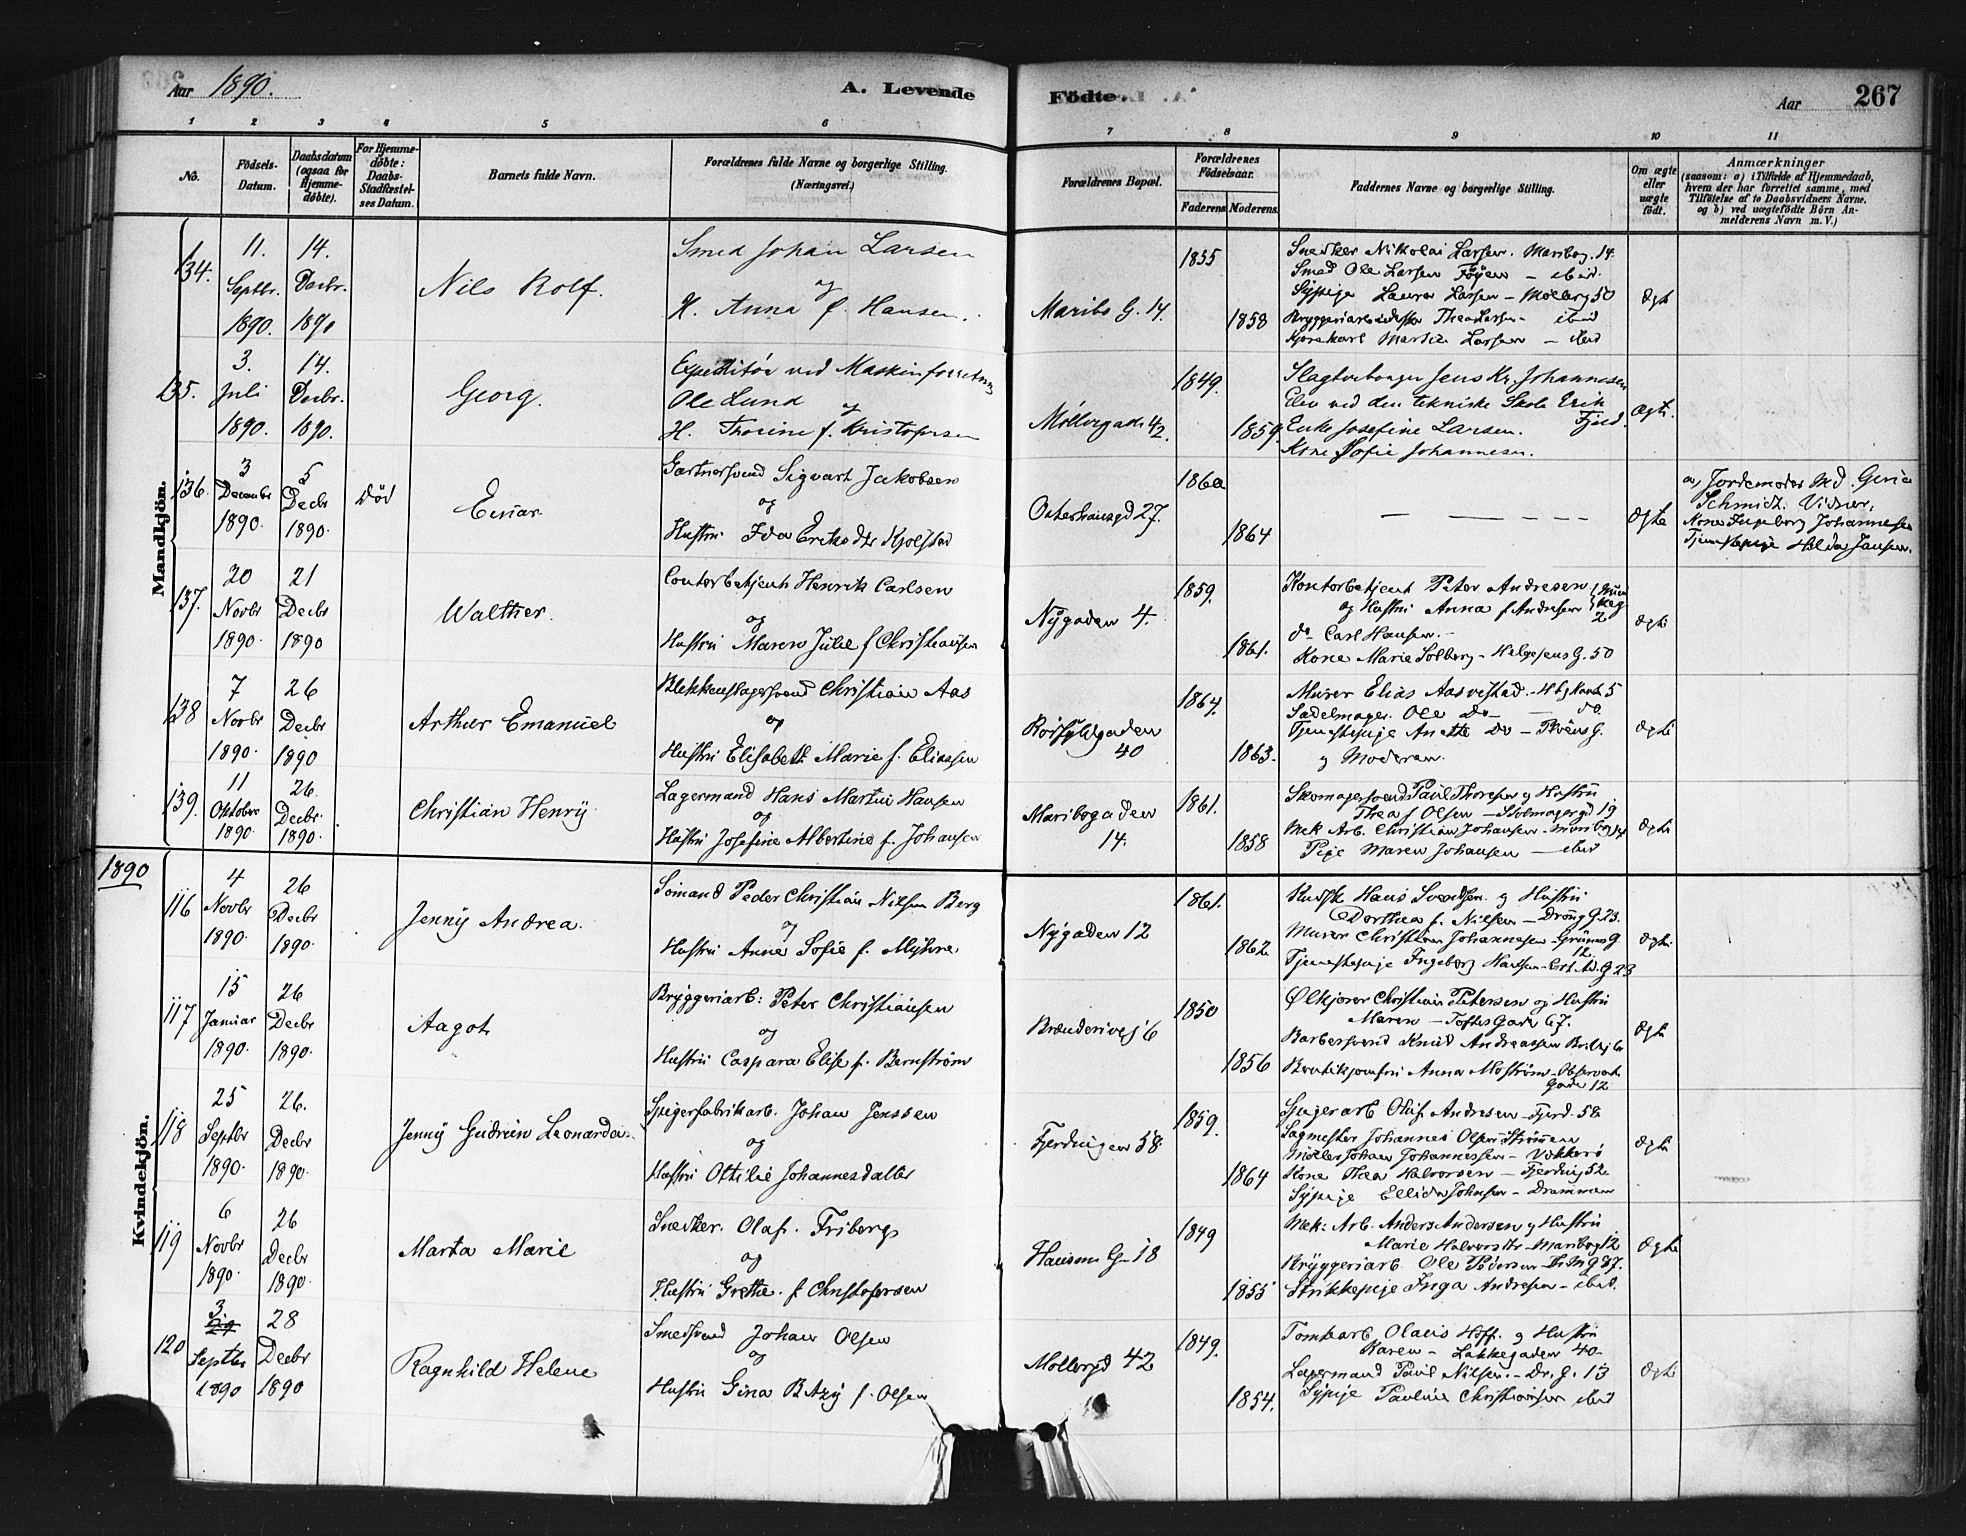 Aar 1890.
A. Levende Födte.
Aar
267
1 2 3 4 5 6 7 8 9 10 11
No.
Födsels-Datum.
Daabsdatum (ogsaa for Hjemme-döbte).
For Hjemme-döbte: Daabs-Stadfæstel-ses Datum.
Barnets fulde Navn.
Forældrenes fulde Navne og borgerlige Stilling. (Næringsvei.)
Forældrenes Bopæl.
Forældrenes Födselsaar.
Faderens Moderens
Faddernes Navne og borgerlige Stilling.
Om ægte eller uægte födt.
Anmærkninger
(saasom: a) i Tilfælde af Hjemmedaab, hvem der har forrettet samme, med Tilföielse af to Daabsvidners Navne. og b) ved uægtefödte Börn An-melderens Navn m. V.)
Mandkjön.
134.
11. Septbr. 1890.
14. Decbr. 1890
Nils Rolf.
Smed Johan Larsen
og
H. Anna f. Hansen.
Maribo G. 14.
1855
1858
Snedker Nikolai Larsen. Maribog. 14
Smed Ole Larsen Föyen — ibid.
Sypige Laura Larsen — Möllerg 50
Bryggeriarbeider Thea Larsen — ibid
Kjörekarl Martin Larsen — ibid
Ægte
135.
3. Juli 1890.
14. Decbr. 1890.
Georg.
Expeditör ved Maskinforretning
Ole Lund
og
H. Thorine f. Kristofersen
Möllergaden 42.
1849.
1859.
Slagtersvenger Jens Kr. Johannesen
Elev ved den tekniske Skole Erik Fjeld.
Enke Josefine Larsen.
Kone Sofie Johannesen.
Ægte.
136.
3 Decembr 1890.
5 Decbr 1890.
död
Einar.
Gartnersvend Sigvart Jakobsen
og
Hustru Ida Eriksdtr Kjolstad
Osterhausgd 27.
1860
1864
— — — — —
Ægte
a, Jordemoder Md. Gurie
Schmidt. Vidner,
Kone Ingeborg Johannesen
Tjenestepige Hilda Jansen.
137.
20 Novbr 1890.
21 Decbr 1890
Walther.
Contorbetjent Henrik Carlsen
og
Hustru Maren Julie f Christiansen
Nygaden 4.
1859.
1861.
Kontorbetjent Peter Andresen
og Hustru Anna f Andresen
do Carl Hansen.
Kone Marie Solberg — Helgesens G. 50
Ægte
138
7 Novbr 1890.
26 Decbr 1890
Arthur Emanuel
Blikkenslagersvend Christian Aas
og
Hustru Elisabeth Marie f. Eliassen
Rörfyldgaden 40
1864.
1863.
Murer Elias Aasvestad
Sadelmager Ole do — do
Tjenestepige Anette do — Thöens G.
og Moderen.
Ægte
139.
11 Oktobre 1890.
26. Decbr 1890.
Christian Henry.
Lagermand Hans Martin Hansen
og
Hustru Josefine Albertine f. Johansen
Maribogaden 14.
1861.
1858
Skomagersvend Paul Thoresen og Hustru
Thea f Olsen — Stolmagergd 19
Mek Arb. Christian Johansen — Maribog 14
Pige Maren Johansen — ibid
Ægte
1890
Kvindekjön.
116
4 Novbr 1890.
26 Decbr 1890.
Jenny Andrea.
Sömand Peder Christian Nilsen Berg
og
Hustru Anne Sofie f. Myhre
Nygaden 12
1861.
1862.
Kudsk Hans Svendsen og Hustru
Dorthea f. Nilsen — Dronng G. 23.
Murer Christian Johannesen — Grüners G 12.
Tjenestepige Ingeborg Hansen
Ægte
117
15 Januar 1890.
26 Decbr 1890.
Aagot.
Bryggeriarb: Peter Christiansen
og
Hustru Caspara Elise f. Bernström
Brænderivej 6
1850
1856
Ölkjörer Christian Petersen og Hustru
Maren — Toftes Gade 67.
Barbersvend Knud Andreassen
Butikjomfru Anna Moström — Observat. Gade 12
Ægte
118
25 Septbr 1890.
26. Decbr 1890.
Jenny Gudrün Leonarda.
Spigerfabrikarb. Johan Jenssen
og
Hustru Ottilie Johannesdatter
Fjerdingen 58.
1859.
1864
Spigerarb Oluf Andresen — Fjerd. 58
Sagmester Johannes Olsen Strömmen
Möller Johan Johannessen — Vækkerö
Kone Thea Halvorsen — Fjerding 52
Sypige Ellida Johnsen — Drammen
Ægte
119
6 Novbr 1890.
26 Decbr 1890.
Marta Marie
Snedker. Olaf. Friberg
og
Hustru Grethe. f Christofersen
Hausm G. 18
1849
1855
Mek: Arb. Anders Andersen og Hustru
Marie Halvorsdtr — Maribog 12
Bryggeriarb. Ole Pedersen
Strikkepige Inga Andresen — ibid.
Ægte
120
3. Septbr 1890
28 Decbr 1890
Ragnhild Helene
Smedsvend Johan Olsen
og
Hustru Gina Betzy f. Olsen
Möllergd 42
1849.
1854.
Tomtearb Olaus Hoff. og Hustru
Karen — Lakkegaden 40
Lagermand Paul Nilsen. — Dr. G. 13
Sypige Pauline Christiansen ibid
Ægte